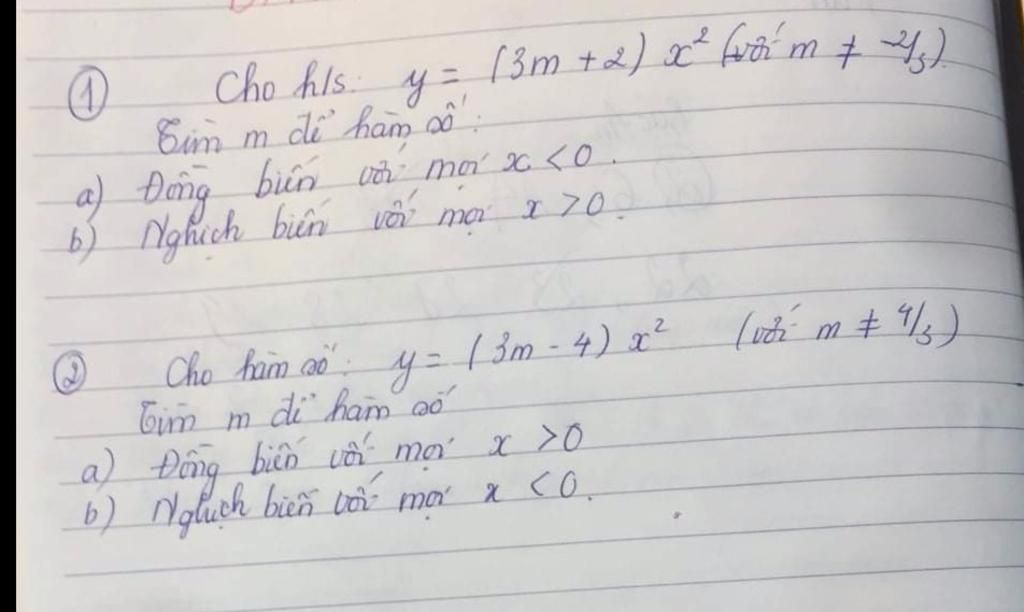 ① Cho h/s: y = (3m + 2) x² (với m ≠ -2/3)
Tìm m để hàm số:
a) Đồng biến với mọi x < 0.
b) Nghịch biến với mọi x > 0.
② Cho hàm số: y = (3m - 4) x² (với m ≠ 4/3)
Tìm m để hàm số
a) Đồng biến với mọi x > 0
b) Nghịch biến với mọi x < 0.